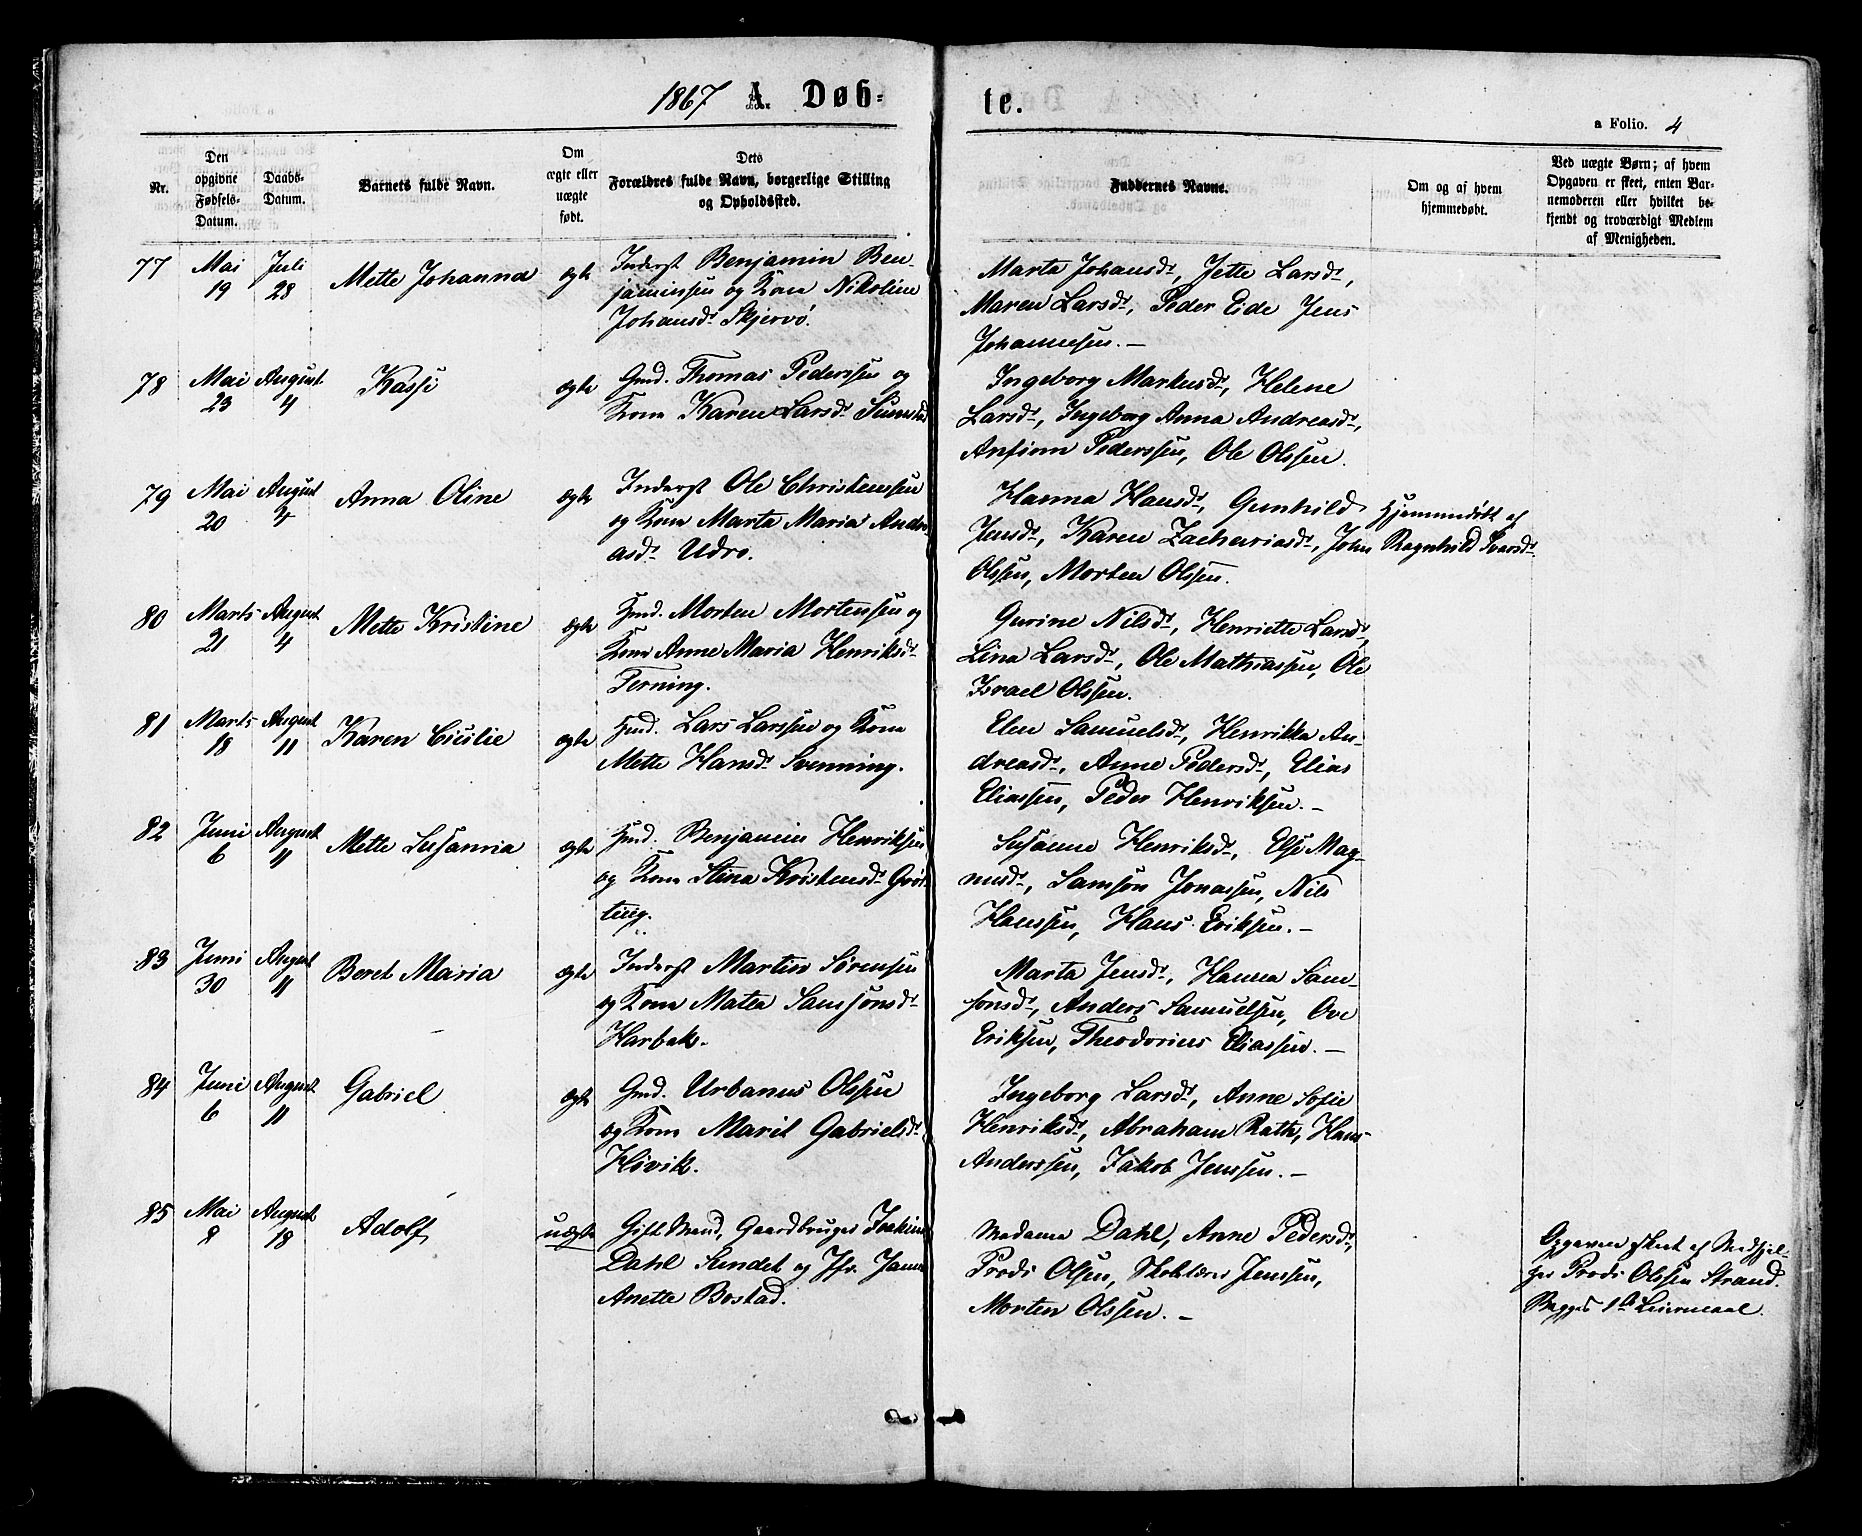 1867 A. Døbte.
a Folio. 4
Nr.
Den opgivne Fødsels-Datum.
Daabs-Datum.
Barnets fulde Navn.
Om ægte eller uægte født.
Dets Forældres fulde Navn, borgerlige Stilling og Opholdssted.
Faddernes Navne.
Om og af hvem hjemmedøbt.
Ved uægte Børn; af hvem Opgaven er skeet, enten Barnemoderen eller hvilket bekjendt og troværdigt Medlem af Menigheden.
77 Mai 19 Juli 28 Mette Johanna ægte
Inderst Benjamin Ben-
jaminsen og Kone Nikoline
Johansdr Skjervö.
Marta Johansdr, Jette Larsdr,
Maren Larsdr, Peder Eide Jens
Johannesen. –
78 Mai 23 August 4 Kasse ægte
Gmd. Thomas Pederssen og
Kone Karen Larsdr Sumstad
Ingeborg Markusdr, Helene
Larsdr, Ingeborg Anna Andreasdr,
Anfinn Pederssen, Ole Olssen.
79 Mai 20 August 4 Anna Oline ægte
Inderst Ole Christenssen
og Kone Marta Maria Andre-
asdr Udro.
Hanna Hansdr, Gunhild
Jensdr, Karen Zachariasdr, John
Olssen, Morten Olssen.
Hjemmedöbt af
Ragnhild Ivarsdr
80 Marts 21 August 4 Mette Kristine ægte
Hmd. Morten Mortensen og
Kone Anne Maria Henriksdr
Terning.
Gurine Nilsdr, Henriette Larsdr,
Lina Larsdr, Ole Mathiassen, Ole
Israel Olssen.
81 Marts 18 August 11 Karen Cicilie ægte
Hmd. Lars Larssen og Kone
Mette Hansdr Svenning.
Elen Samuelsdr, Henrikka An-
dreasdr, Anne Pedersdr, Elias
Eliassen, Peder Henriksen. –
82 Juni 6 August 11 Mette Susanna ægte
Hmd. Benjamin Henriksen
og Kone Stina Kristensdr Gröt-
ting.
Susanne Henriksdr, Else Mag-
nusdr, Samson Jonassen, Nils
Hanssen, Hans Eriksen. –
83 Juni 30 August 11 Beret Maria ægte
Inderst Martin Sörensen
og Kone Matea Samsonsdr
Harbak.
Marta Jensdr, Hanna Sam-
sonsdr, Anders Samuelsen, Ove
Eriksen, Theodorius Eliassen. –
84 Juni 6 August 11 Gabriel ægte
Gmd. Urbanus Olssen
og Kone Marit Gabrielsdr
Hövik.
Ingeborg Larsdr, Anne Sofie
Henriksdr, Abraham Rath, Hans
Anderssen, Jakob Jenssen. –
85 Mai 8 August 18 Adolf uægte
Gift Mand, Gaardbruger Joakim
Dahl Sundet og Jfr. Jana
Anette Bostad.
Madame Dahl, Anne Pedersdr,
Prods Olsen, Skolelærer Jenssen,
Morten Olssen. –
Opgaven skeet af Medhjel-
per Prods Olssen Strand.
Begges 1ste Leiermaal.